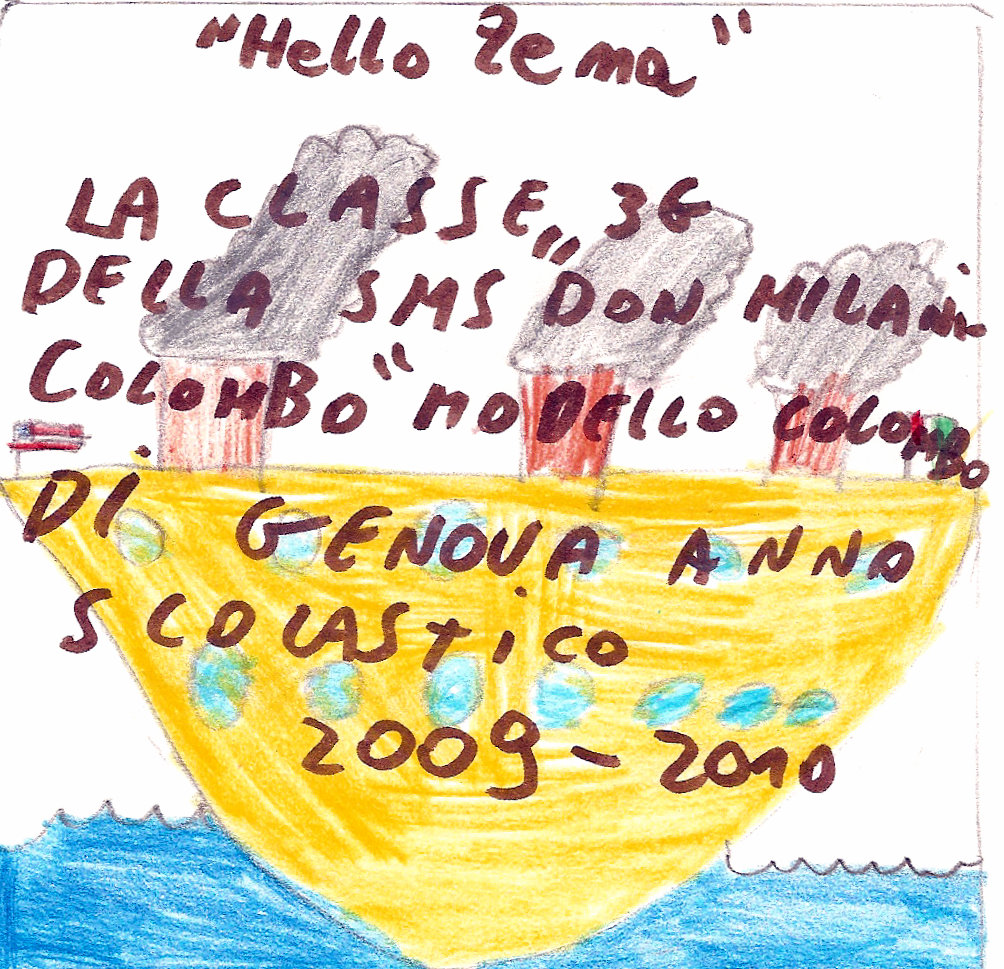 "Hello Zena"
LA CLASSE 3G
DELLA SMS "DON MILANI
COLOMBO" MODELLO COLOMBO
DI GENOVA ANNO
SCOLASTICO
2009-2010